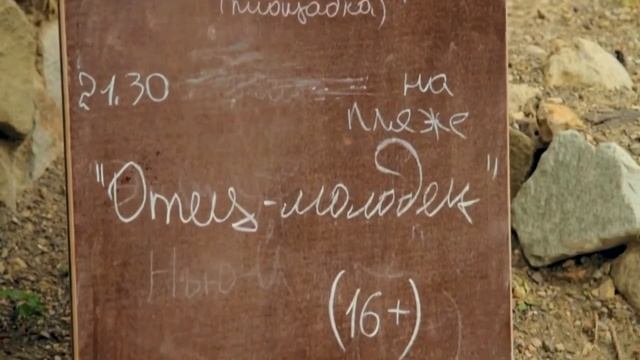 (площадка)
21.30
на
пляже
"Отец-молодец"
Нью-Й
(16+)